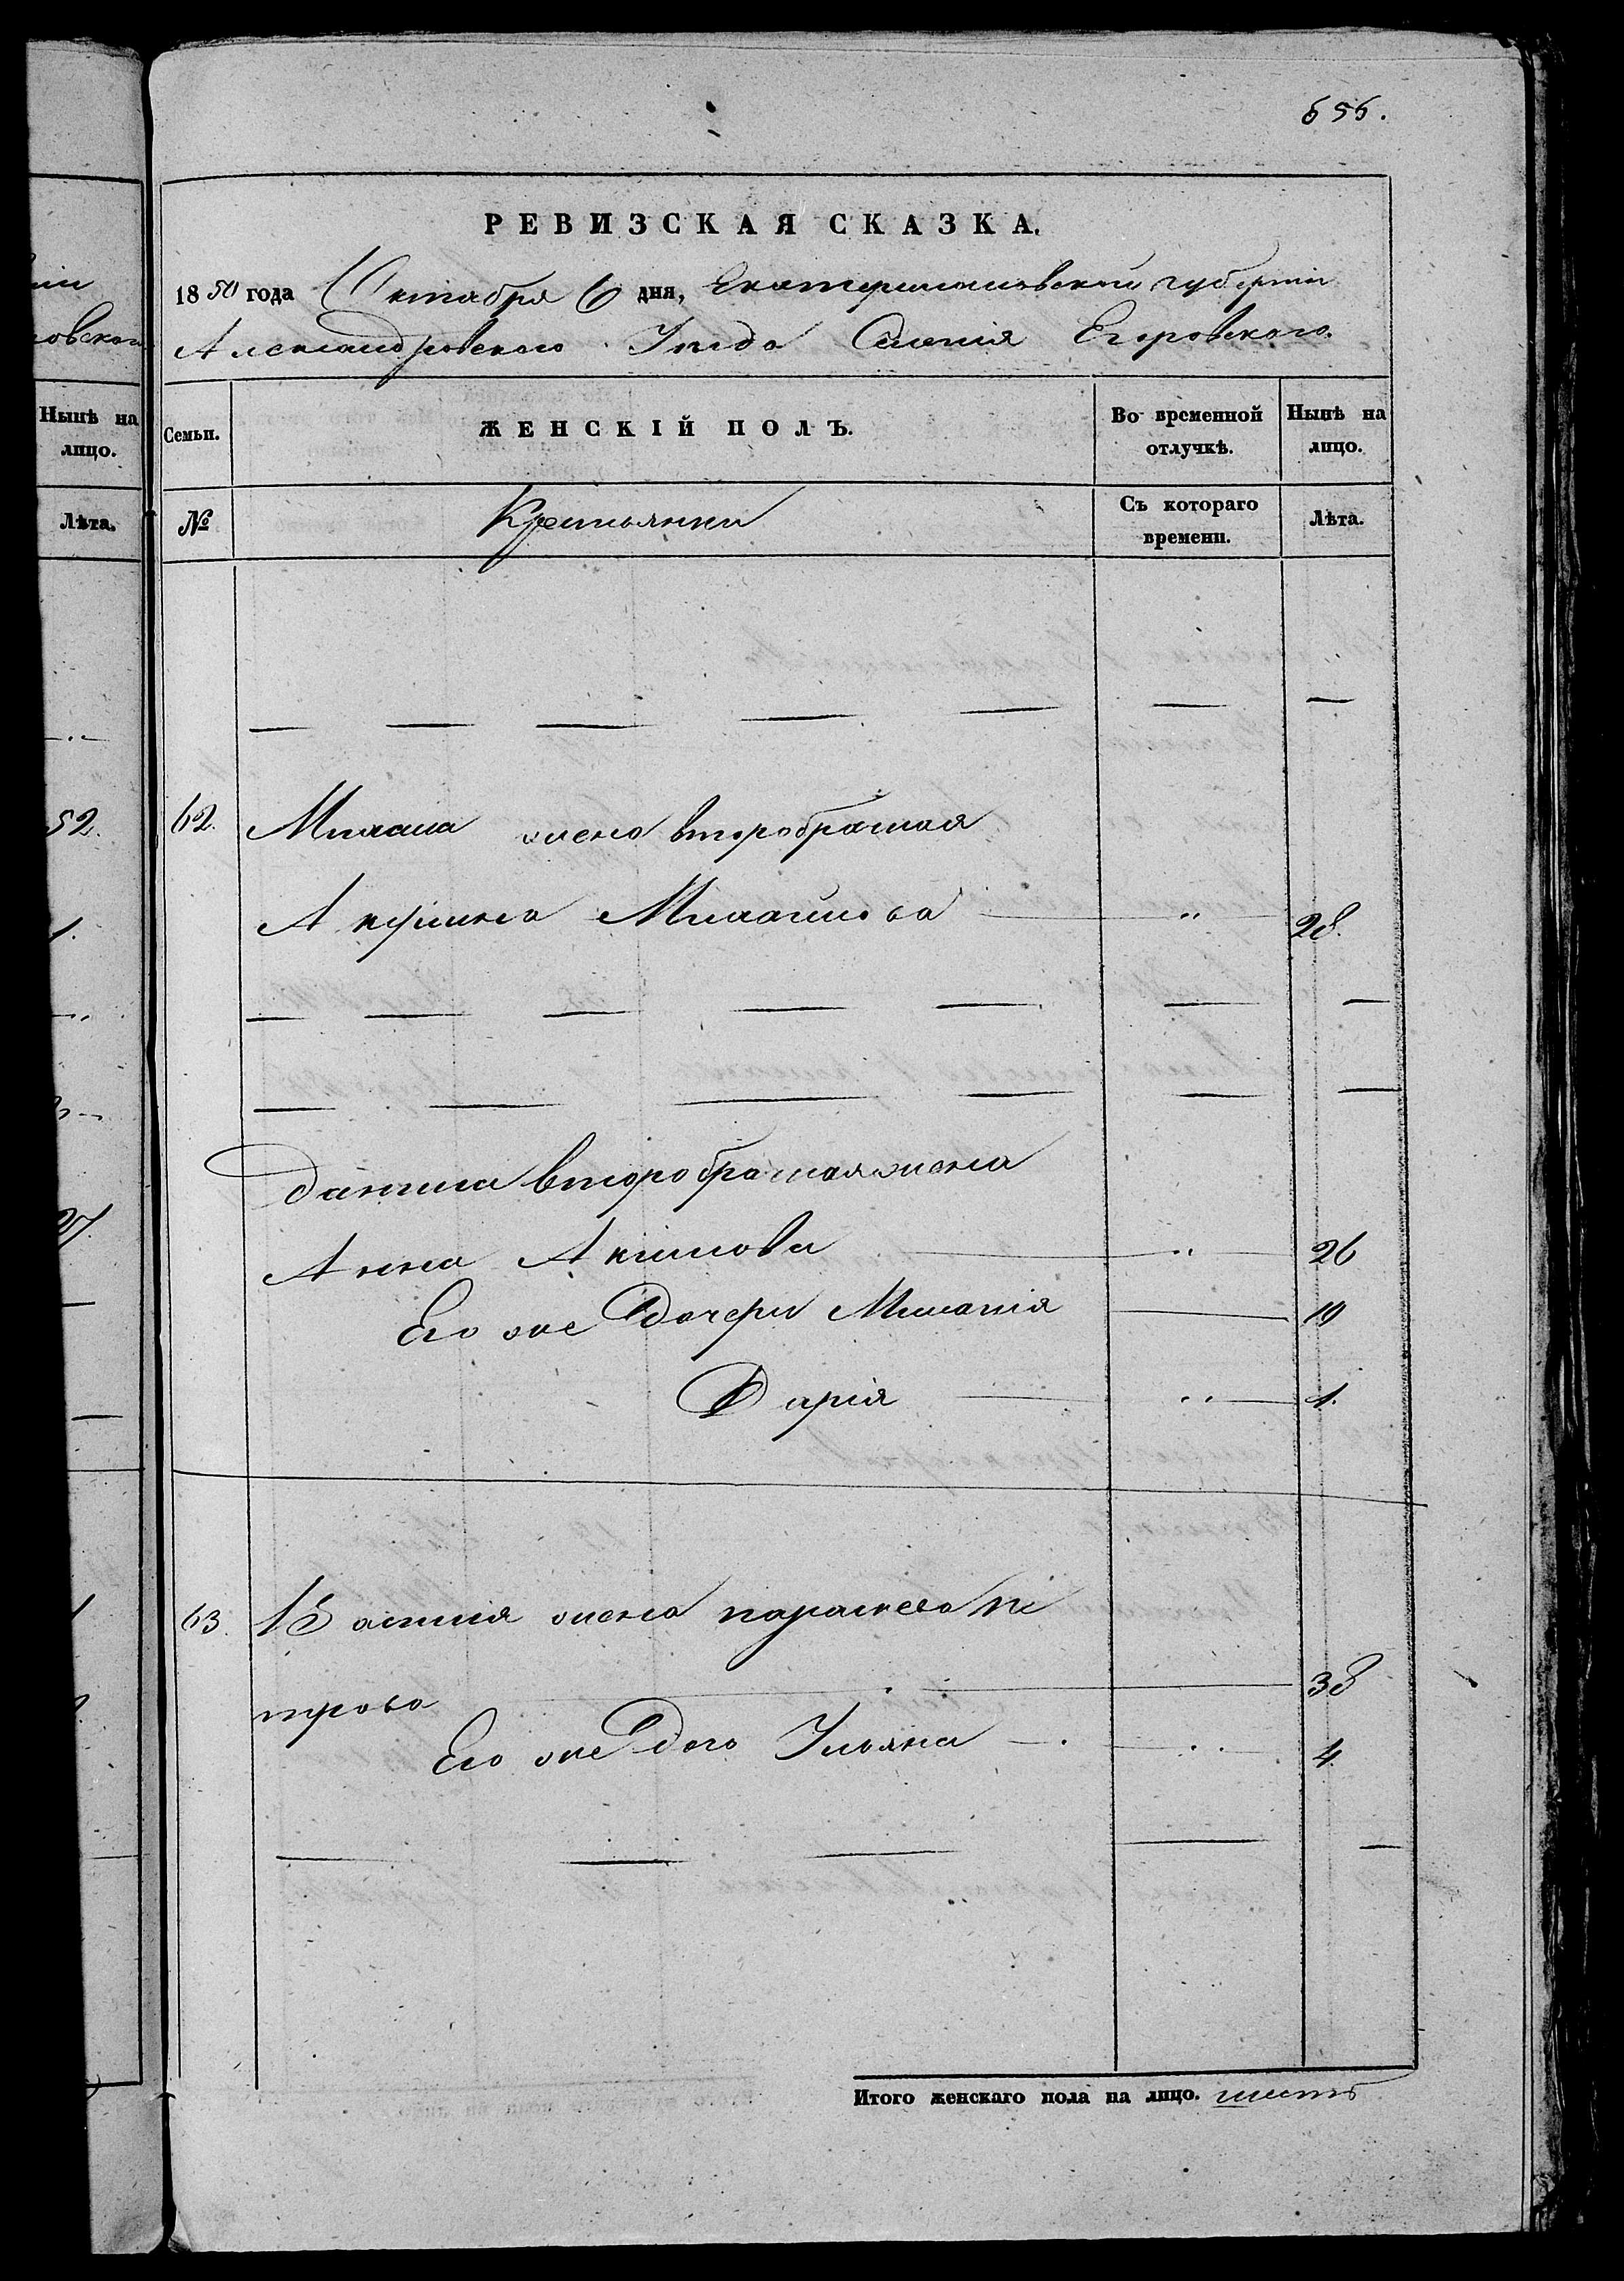 656.
РЕВИЗСКАЯ СКАЗКА.
1850 года Октября 6 дня, Екатеринославской губернии
Александровского Уѣзда Селенія Егоровского.
Нынѣ на лицо.
Лѣта.
52.
27.
Семьи. ЖЕНСКІЙ ПОЛЪ. Во временной отлучкѣ. Нынѣ на лицо.
№ Крестьянки Съ котораго времени. Лѣта.
62. Михаила жена второбрачная
Михайлова " 28.
Данила второбрачная жена
Анна Акимова " 26
Его же Дочери Миланія 10
Дарія " 1.
63. Василія жена параскева пе
трова 38
Его же Дочь Ульяна " 4
Итого женскаго пола на лицо. шесть